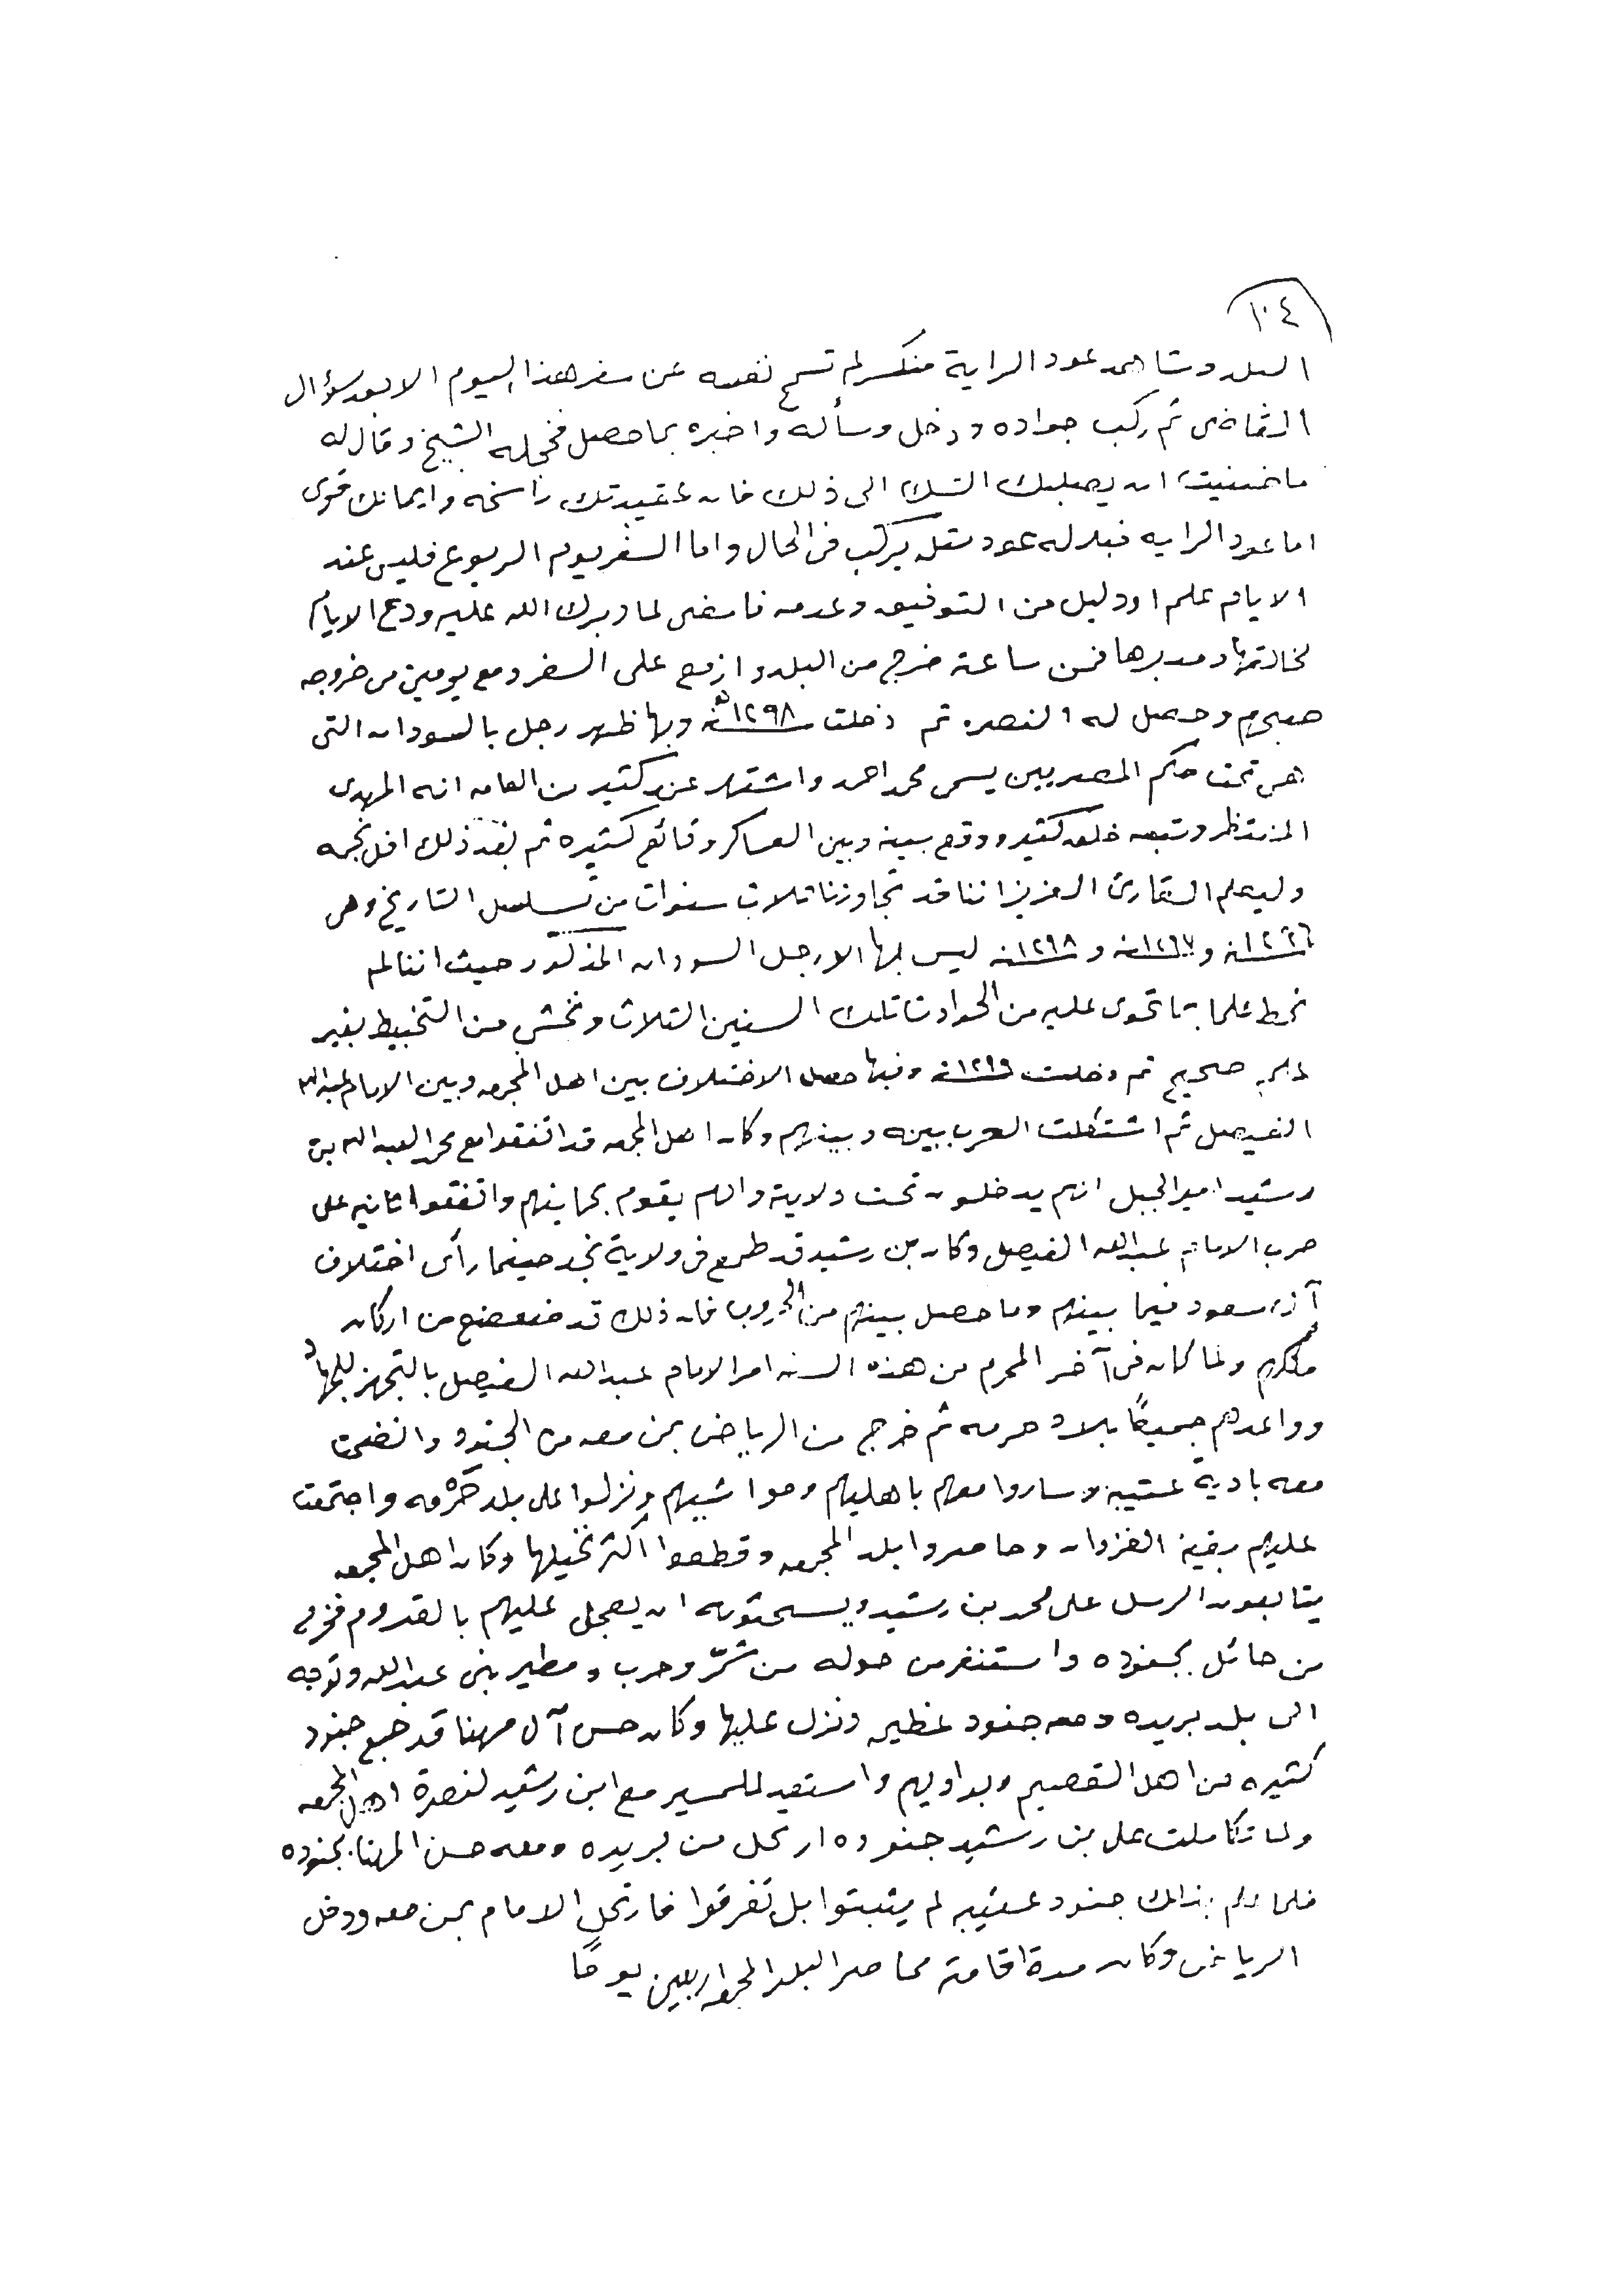 ١٠٤
البلد وشاهد عود الراية منكسر لم تسمح نفسه عن سفر هذا اليوم الا بعد سؤال
القاضي ثم ركب جواده ودخل وسأله واخبره بما حصل فخجله الشيخ وقال له
ما ضنيت ان يصلبك الشك الى ذلك فان عقيدتك راسخه وايمانك قوي
اما عود الرايه فبدله عود مثله يركب في الحال واما السفر يوم الربوع فليس عند
الايام علم او دليل من التوفيق وعدمه فامضي لما دبرك الله عليه ودع الايام
لخالقها ومدبرها فمن ساعته خرج من البلد وازمع على السفر ومع يومين من خروجه
صبحهم وحصل له النصر ثم دخلت سنة ١٢٩٨هـ وبها ظهر رجل بالسودان التي
هي تحت حكم المصريين يسمى محمد احمد واشتهر عن كثير من العامه انه المهدي
المنتظر وتبعه خلق كثير ووقع بينه وبين العساكر وقائع كثيره ثم بعد ذلك افل نجمه
وليعلم القارئ العزيز اننا قد تجاوزنا ثلاث سنوات من تسلسل التاريخ وهي
سنة ١٢٩٦ و سنة ١٢٩٧ و سنة ١٢٩٨ ليس بها الا رجل السودان المذكور حيث اننا لم
نحط علما بما تحوي عليه من الحوادث تلك السنين الثلاث ونخشى من التخبيط بغير
صحيح ثم دخلت سنة ١٢٩٩ وفيها حصل الاختلاف بين اهل المجمعه وبين الامام عبدالله
الفيصل ثم اشتعلت الحرب بينه وبينهم وكان اهل المجمعه قد اتفقوا مع محمد العبدالله بن
رشيد امير الجبل انهم يدخلون تحت ولايته وانه يقوم بحمايتهم واتفقوا ثانيه على
حرب الامام عبدالله الفيصل وكان بن رشيد قد طمع في ولاية نجد حينما رأى اختلاف
آل سعود فيما بينهم وما حصل بينهم من الحروب فان ذلك قد ضعضع من اركان
ملكهم ولما كان في آخر المحرم من هذه السنه امر الامام عبدالله الفيصل بالتجهز للجهاد
وواعدهم جميعًا بلاد حرمه ثم خرج من الرياض بمن معه من الجنود وانضمت
معه بادية عتيبه وساروا معهم باهليهم ومواشيهم ونزلوا على بلد حَرْمه واجتمعت
عليهم بقية الغزوان وحاصروا بلد المجمعه وقطعوا اكثر نخيلها وكان اهل المجمعه
يتابعون الرسل على محمد بن رشيد ويستحثونه ان يعجل عليهم بالقدوم فخرج
من حائل بجنوده واستنفر من حوله من شمّر وحرب ومطير بني عبدالله وتوجه
الى بلد بريده ومعه جنود عظيمه ونزل عليها وكان حسن آل مهنا قد جمع جنود
كثيره من اهل القصيم وبواديهم واستعد للمسير مع ابن رشيد لنصرة اهل المجمعه
ولما تكاملت على بن رشيد جنوده ارتحل من بريده ومعه حسن المهنا بجنوده
فلما علم بذلك جنود عتيبه لم يثبتوا بل تفرقوا فارتحل الامام بمن معه ودخل
الرياض وكان مدة اقامته محاصر البلد المجمعه اربعين يومًا